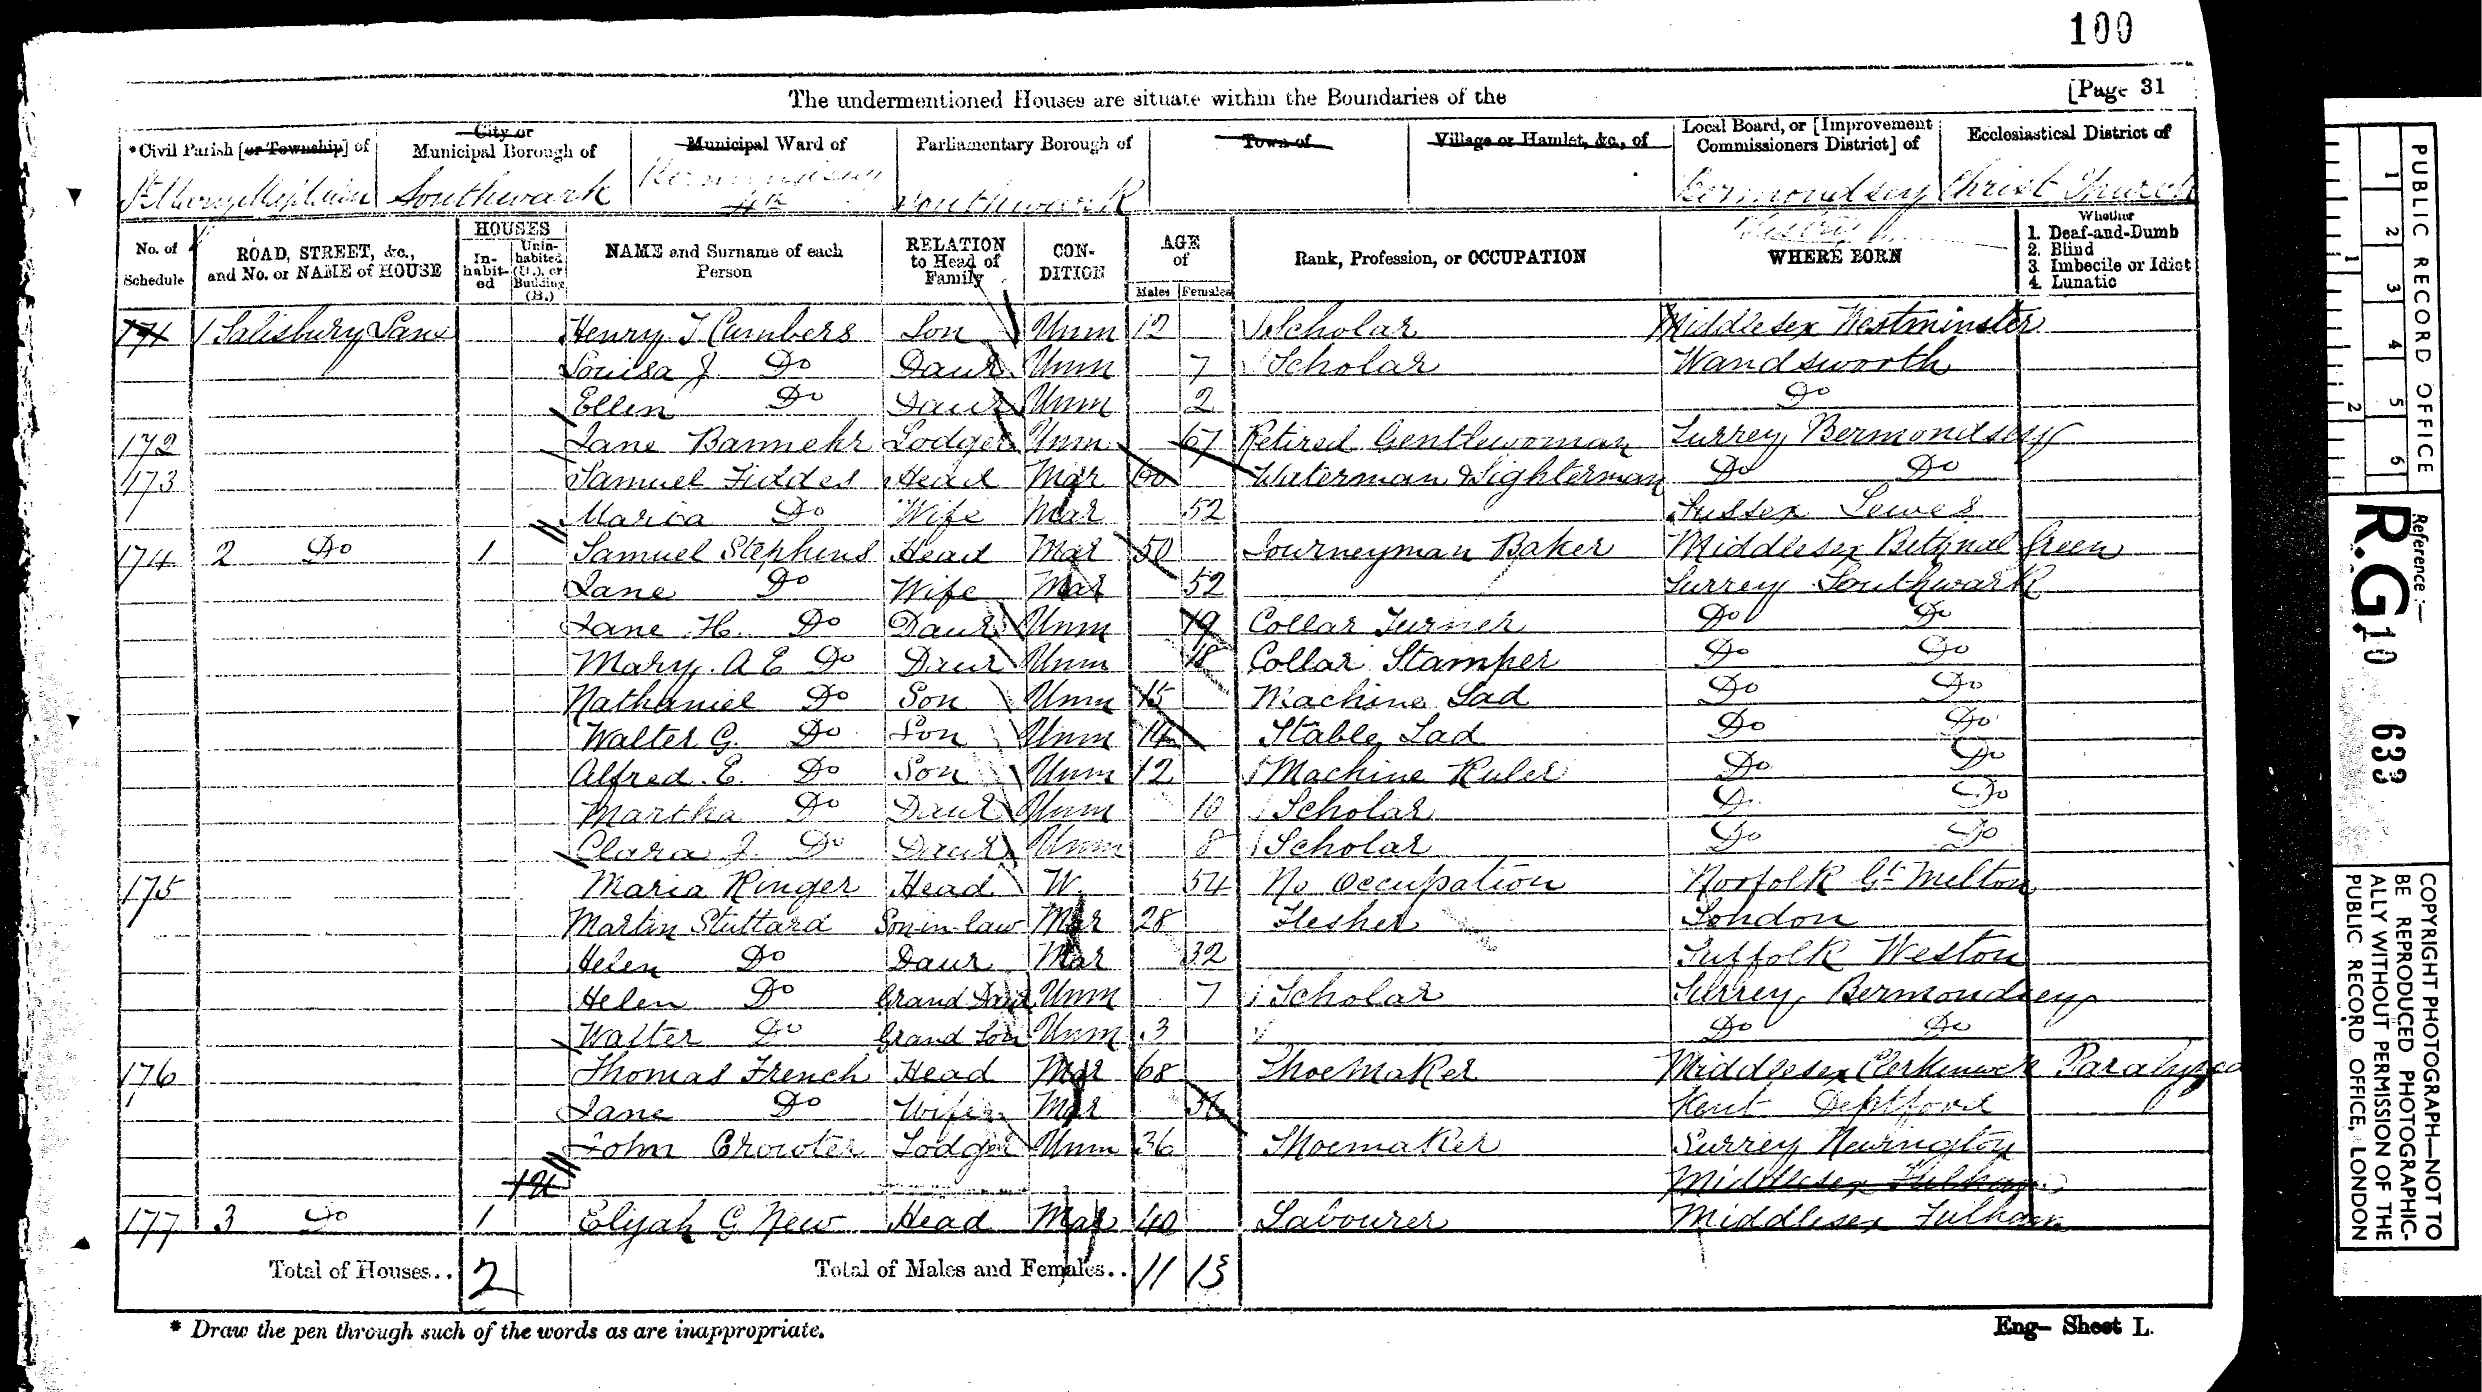 100
[Page 31
The undermentioned Houses are situate within the Boundaries of the
*Civil Parish [or Township] of
City or Municipal Borough of
Municipal Ward of
Parliamentary Borough of
Town of
Village or Hamlet, &c., of
Local Board, or [Improvement Commissioners District] of
Ecclesiastical District of
Southwark Bermondsey Southwark Bermondsey Christ Church
No. of Schedule
ROAD, STREET, &c., and No. or NAME of HOUSE
HOUSES
In-habit-ed
Unin-habited (U.), or Building (B.)
NAME and Surname of each Person
RELATION to Head of Family
CON-DITION
AGE of
Males
Females
Rank, Profession, or OCCUPATION
WHERE BORN
Whether
1. Deaf-and-Dumb
2. Blind
3. Imbecile or Idiot
4. Lunatic
171 1 Salisbury Lane Henry J Cumbers Son Unm 12 Scholar Middlesex Westminster
Louisa J. Do Daur Unm 7 Scholar Wandsworth
Ellen Do Daur Unm 2 Do
172 Jane Lodger Unm 67 Retired Gentlewoman Surrey Bermondsey
173 Samuel Fiddes Head Mar 60 Waterman & Lighterman Do Do
Maria Do Wife Mar 52 Sussex Lewes
174 2 Do 1 Samuel Stephens Head Mar 50 Journeyman Baker Middlesex Bethnal Green
Jane Do Wife Mar 52 Surrey Southwark
Jane H. Do Daur Unm 19 Collar Turner Do Do
Mary. A E Do Daur Unm 18 Collar Stamper Do Do
Nathaniel Do Son Unm 15 Machine Lad Do Do
Walter G. Do Son Unm 14 Stable Lad Do Do
Alfred. E. Do Son Unm 12 Machine Ruler Do Do
Martha Do Daur Unm 10 Scholar Do Do
Clara J. Do Daur Unm 8 Scholar Do Do
175 Maria Ringer Head W. 54 No Occupation Norfolk Gt Melton
Martin Stuttard Son in law Mar 28 Flesher London
Helen Do Daur Mar 32 Suffolk Weston
Helen Do Grand Daur Unm 7 Scholar Surrey Bermondsey
Walter Do Grand Son Unm 3 Do Do
176 Thomas French Head Mar 68 Shoemaker Middlesex Clerkenwell
Jane Do Wife Mar 56 Kent Deptford
John Crowter Lodger Unm 36 Shoemaker Surrey Newington
Middlesex Fulham
177 3 Do 1 Elijah G New Head Mar 40 Labourer Middlesex Fulham
Total of Houses.. 2 Total of Males and Females.. 11 13
* Draw the pen through such of the words as are inappropriate.
Eng— Sheet L.
PUBLIC RECORD OFFICE
1 2 3 4 5 6
1 2
Reference:—
R.G. 10 633
COPYRIGHT PHOTOGRAPH—NOT TO
BE REPRODUCED PHOTOGRAPHIC-
ALLY WITHOUT PERMISSION OF THE
PUBLIC RECORD OFFICE, LONDON